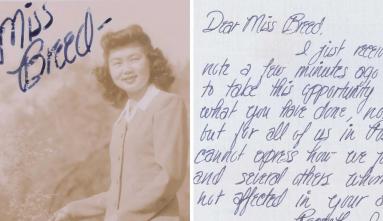 Miss
Breed-
Dear Miss Breed,
I just recei
note a few minutes ago
to take this opportunity
what you have done, no
but for all of us in th
cannot express how we
and several others whom
not affected in your